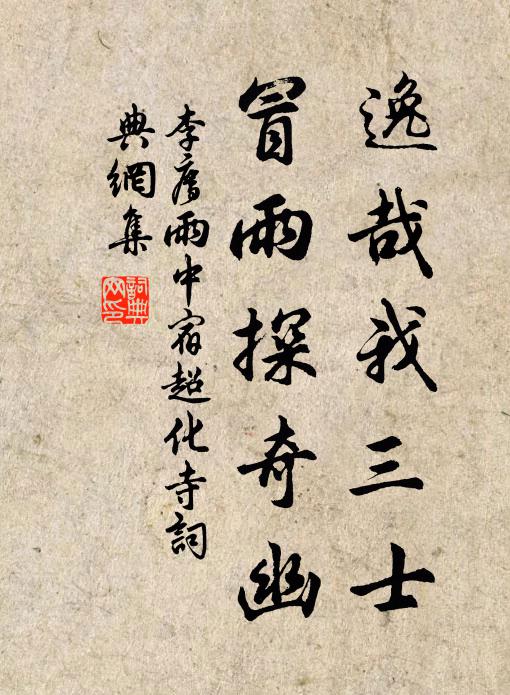 逸哉我三士
冒雨探奇幽
李廌雨中宿超化寺詞
典網集
詞典
网印